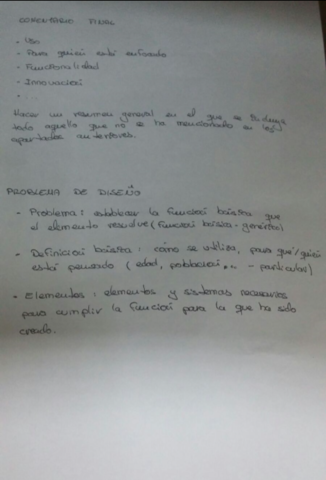 COMENTARIO FINAL
- Uso
- Para quien está enfocado
- Funcionalidad
- Innovación
- ...
Hacer un resumen general en el que se
todo aquello que no se ha mencionado en los
apartados anteriores.
PROBLEMA DE DISEÑO
- Problema: establecer la función básica que
el elemento resuelve (función básica - genérico)
- Definición básica: cómo se utiliza, para qué/quién
está pensado (edad, población... - particular)
- Elementos: elementos y sistemas necesarios
para cumplir la función para la que ha sido
creado.